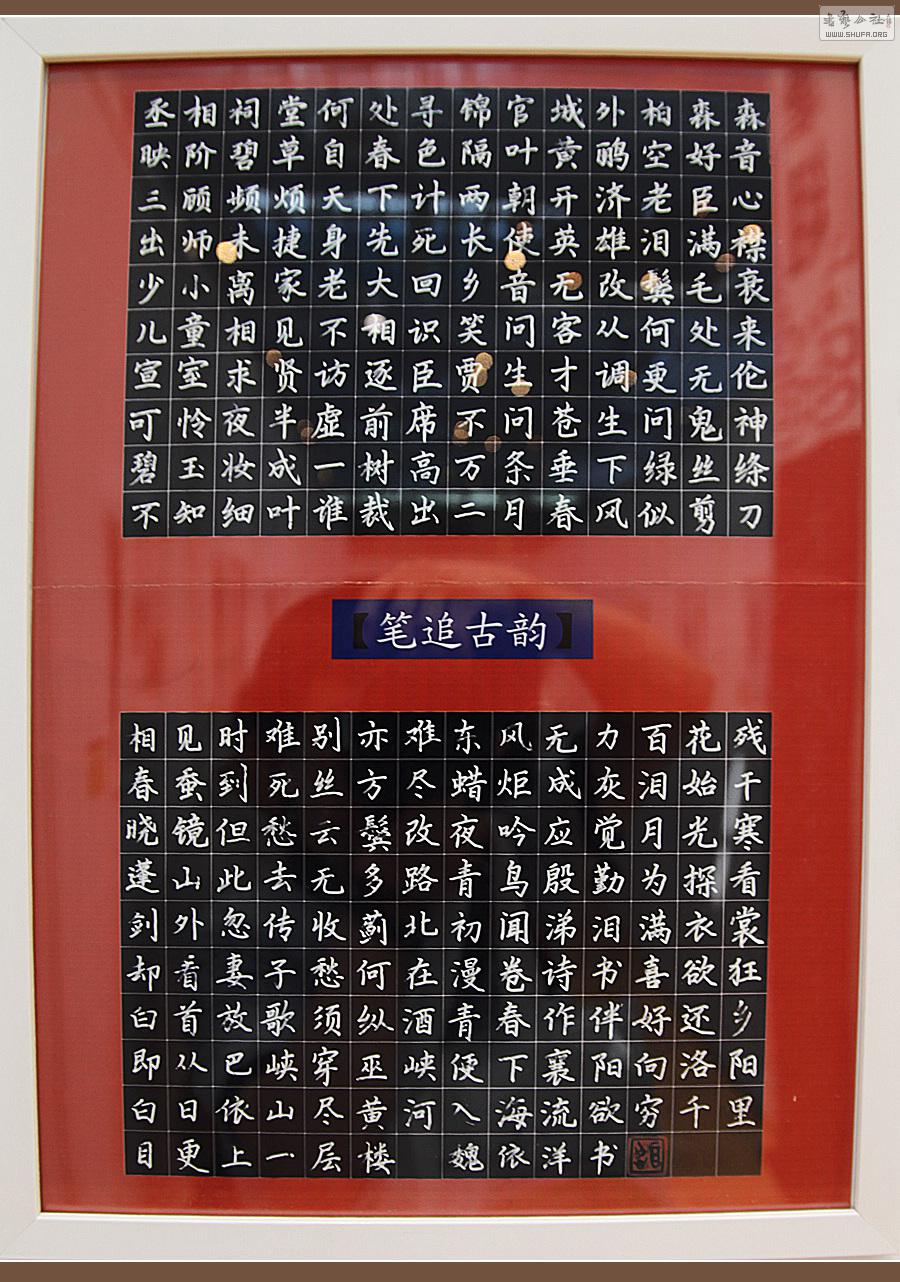 書艺公社
WWW.SHUFA.ORG
丞相祠堂何处寻锦官城外柏森森
映阶碧草自春色隔叶黄鹂空好音
三顾频烦天下计两朝开济老臣心
出师未捷身先死长使英雄泪满襟
少小离家老大回乡音无改鬓毛衰
儿童相见不相识笑问客从何处来
宣室求贤访逐臣贾生才调更无伦
可怜夜半虚前席不问苍生问鬼神
碧玉妆成一树高万条垂下绿丝绦
不知细叶谁裁出二月春风似剪刀
【笔追古韵】
相见时难别亦难东风无力百花残
春蚕到死丝方尽蜡炬成灰泪始干
晓镜但愁云鬓改夜吟应觉月光寒
蓬山此去无多路青鸟殷勤为探看
剑外忽传收蓟北初闻涕泪满衣裳
却看妻子愁何在漫卷诗书喜欲狂
白首放歌须纵酒青春作伴好还乡
即从巴峡穿巫峡便下襄阳向洛阳
白日依山尽黄河入海流欲穷千里
目更上一层楼 魏依洋书